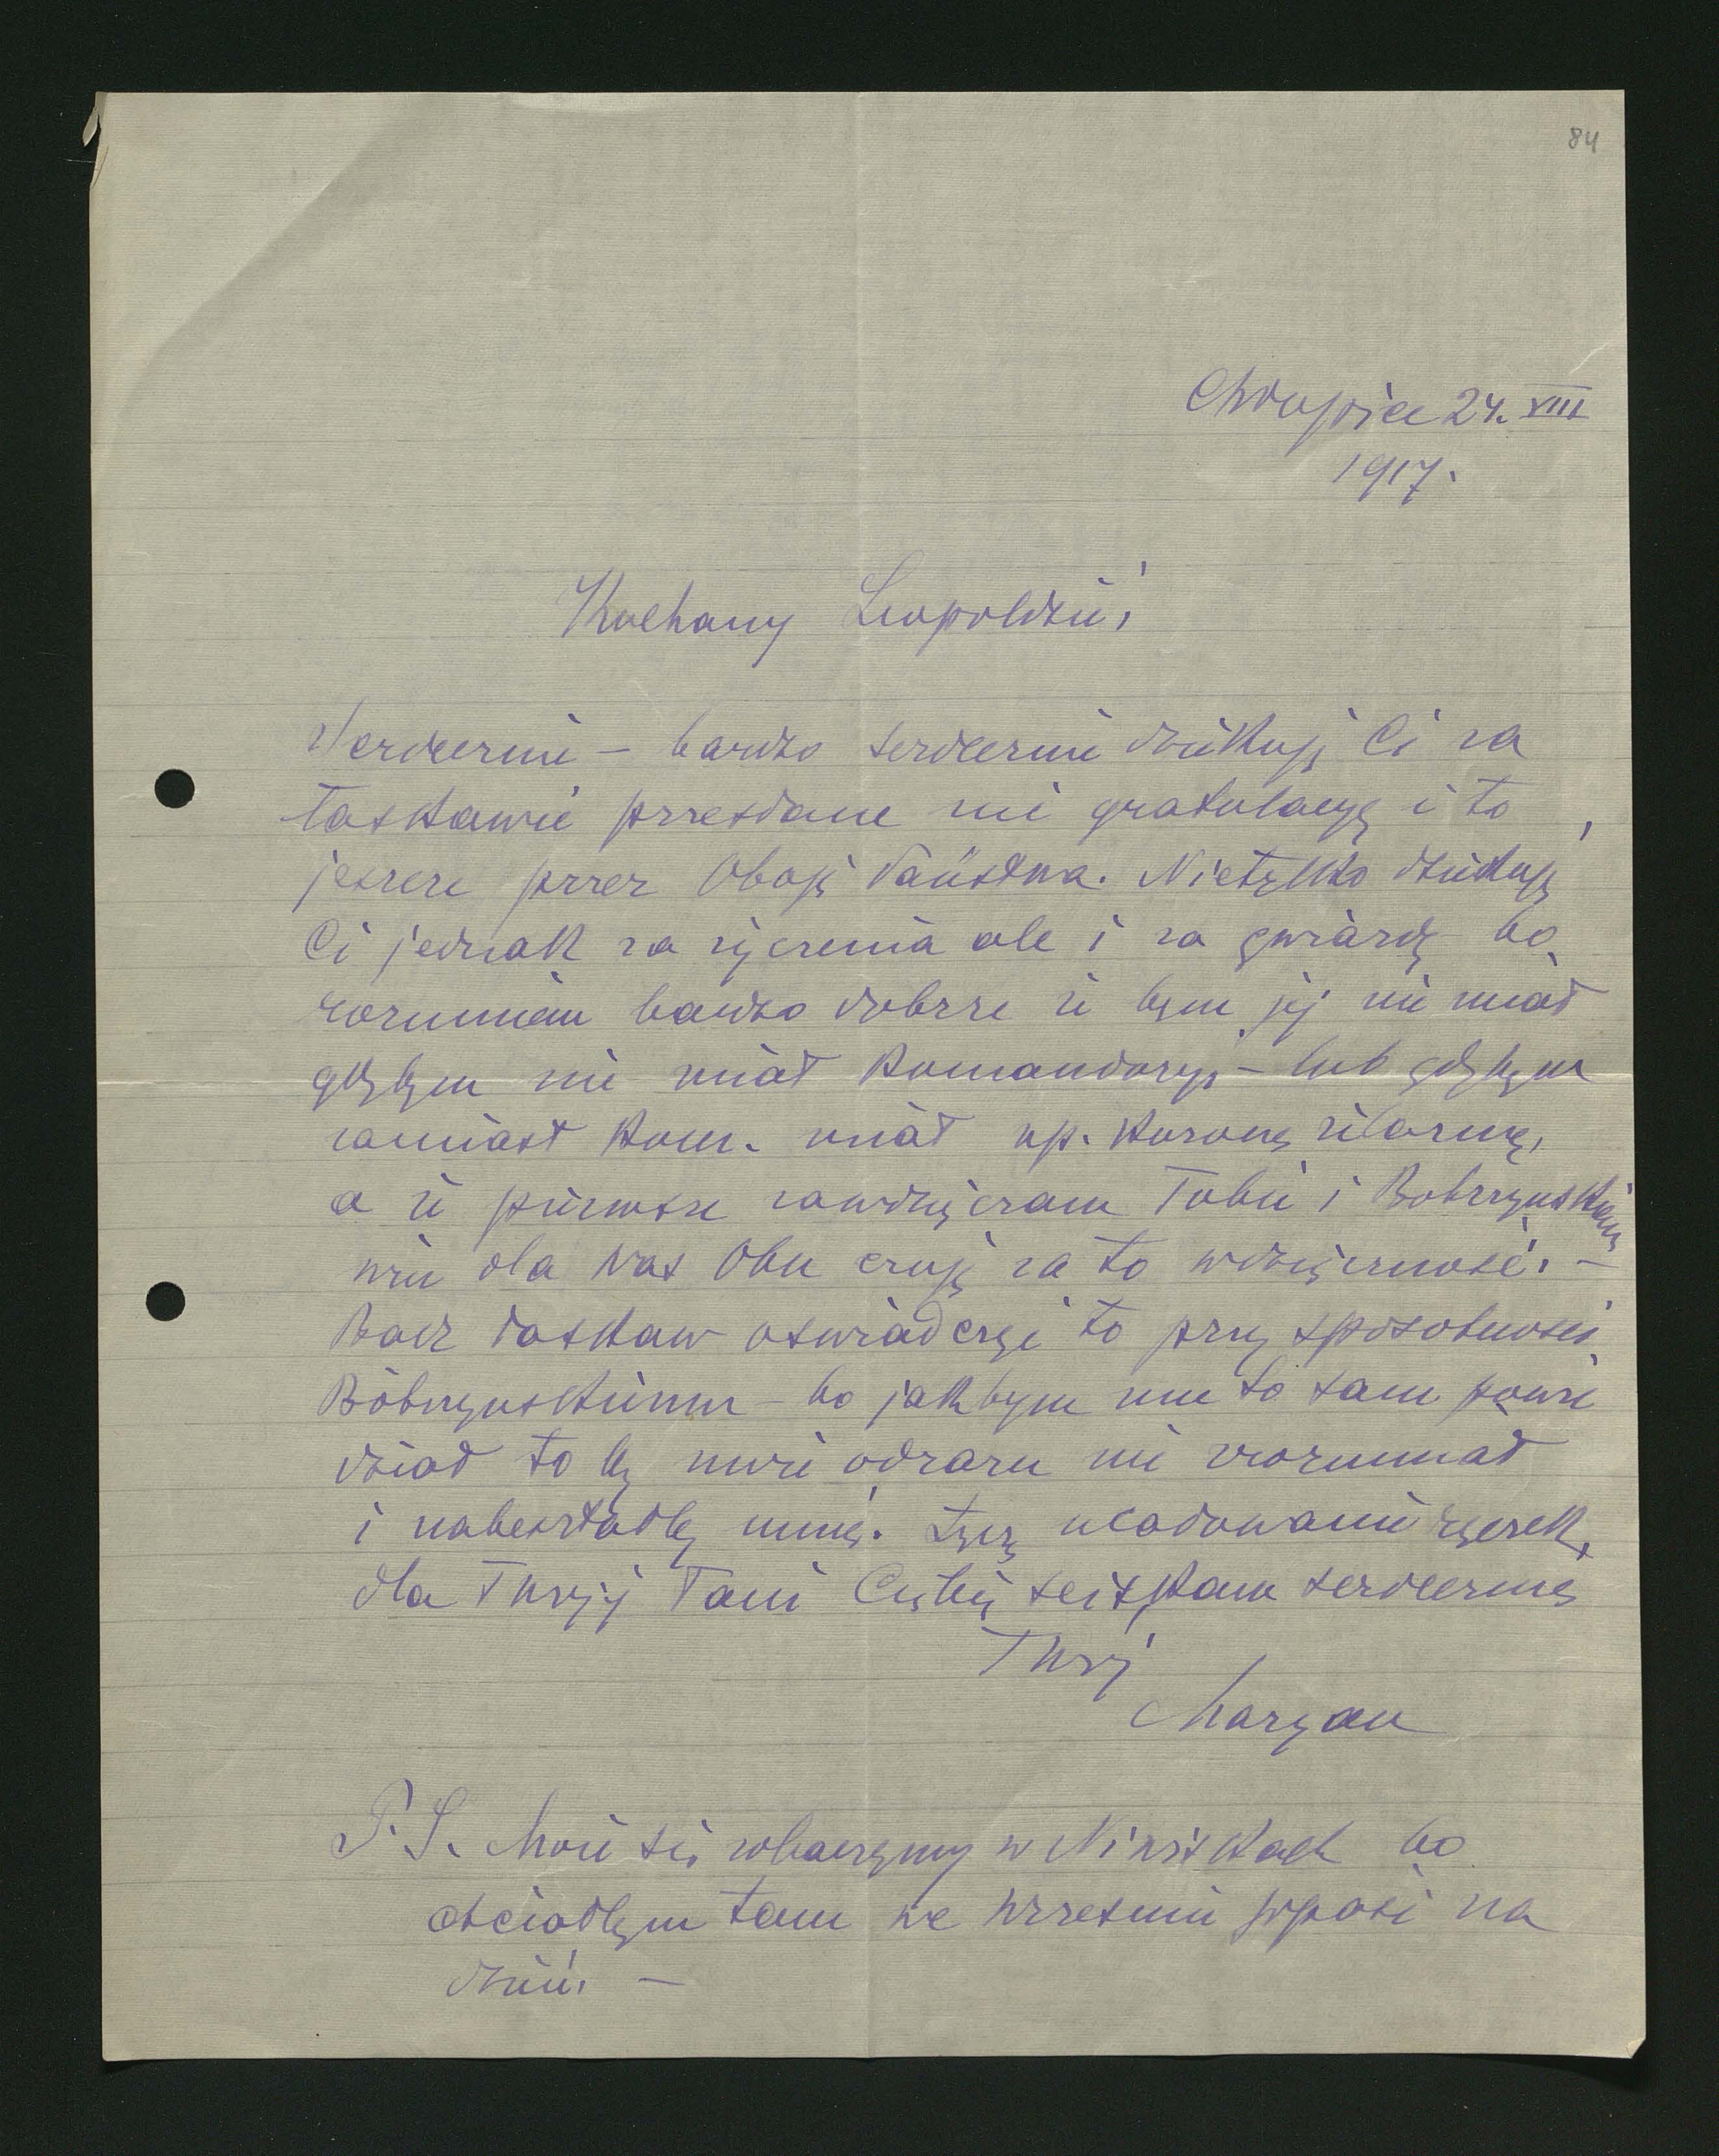 84
Chłopice 24. VIII
1917.
Kochany Leopoldzie!
Serdecznie – bardzo serdecznie dziękuję Ci za
łaskawie przesłane mi gratulacye i to
jeszcze przez Oboje Państwa. Nietylko dziękuję
Ci jednak za życzenia ale i za gwiazdę bo
rozumiem bardzo dobrze iż bym jej nie miał
gdybym nie miał Komandoryi – lub gdybym
zamiast Kom. miał np. Koronę żelazną,
a iż pierwsze zawdzięczam Tobie i Bobrzyńskiemu
więc dla Was Obu czuję za to wdzięczność. –
Bądź łaskaw oświadczyć to przy sposobności
Bobrzyńskiemu – bo jakbym mu to sam powie
dział to by może odrazu nie zrozumiał
i nabeształby mnie. Łączę ucałowanie rączek
dla Twojej Pani Ciebie ściskam serdecznie
Twój
Maryan
P.S. Może się zobaczymy w Niwiskach bo
chciałbym tam we wrześniu wpaść na
dzień. –